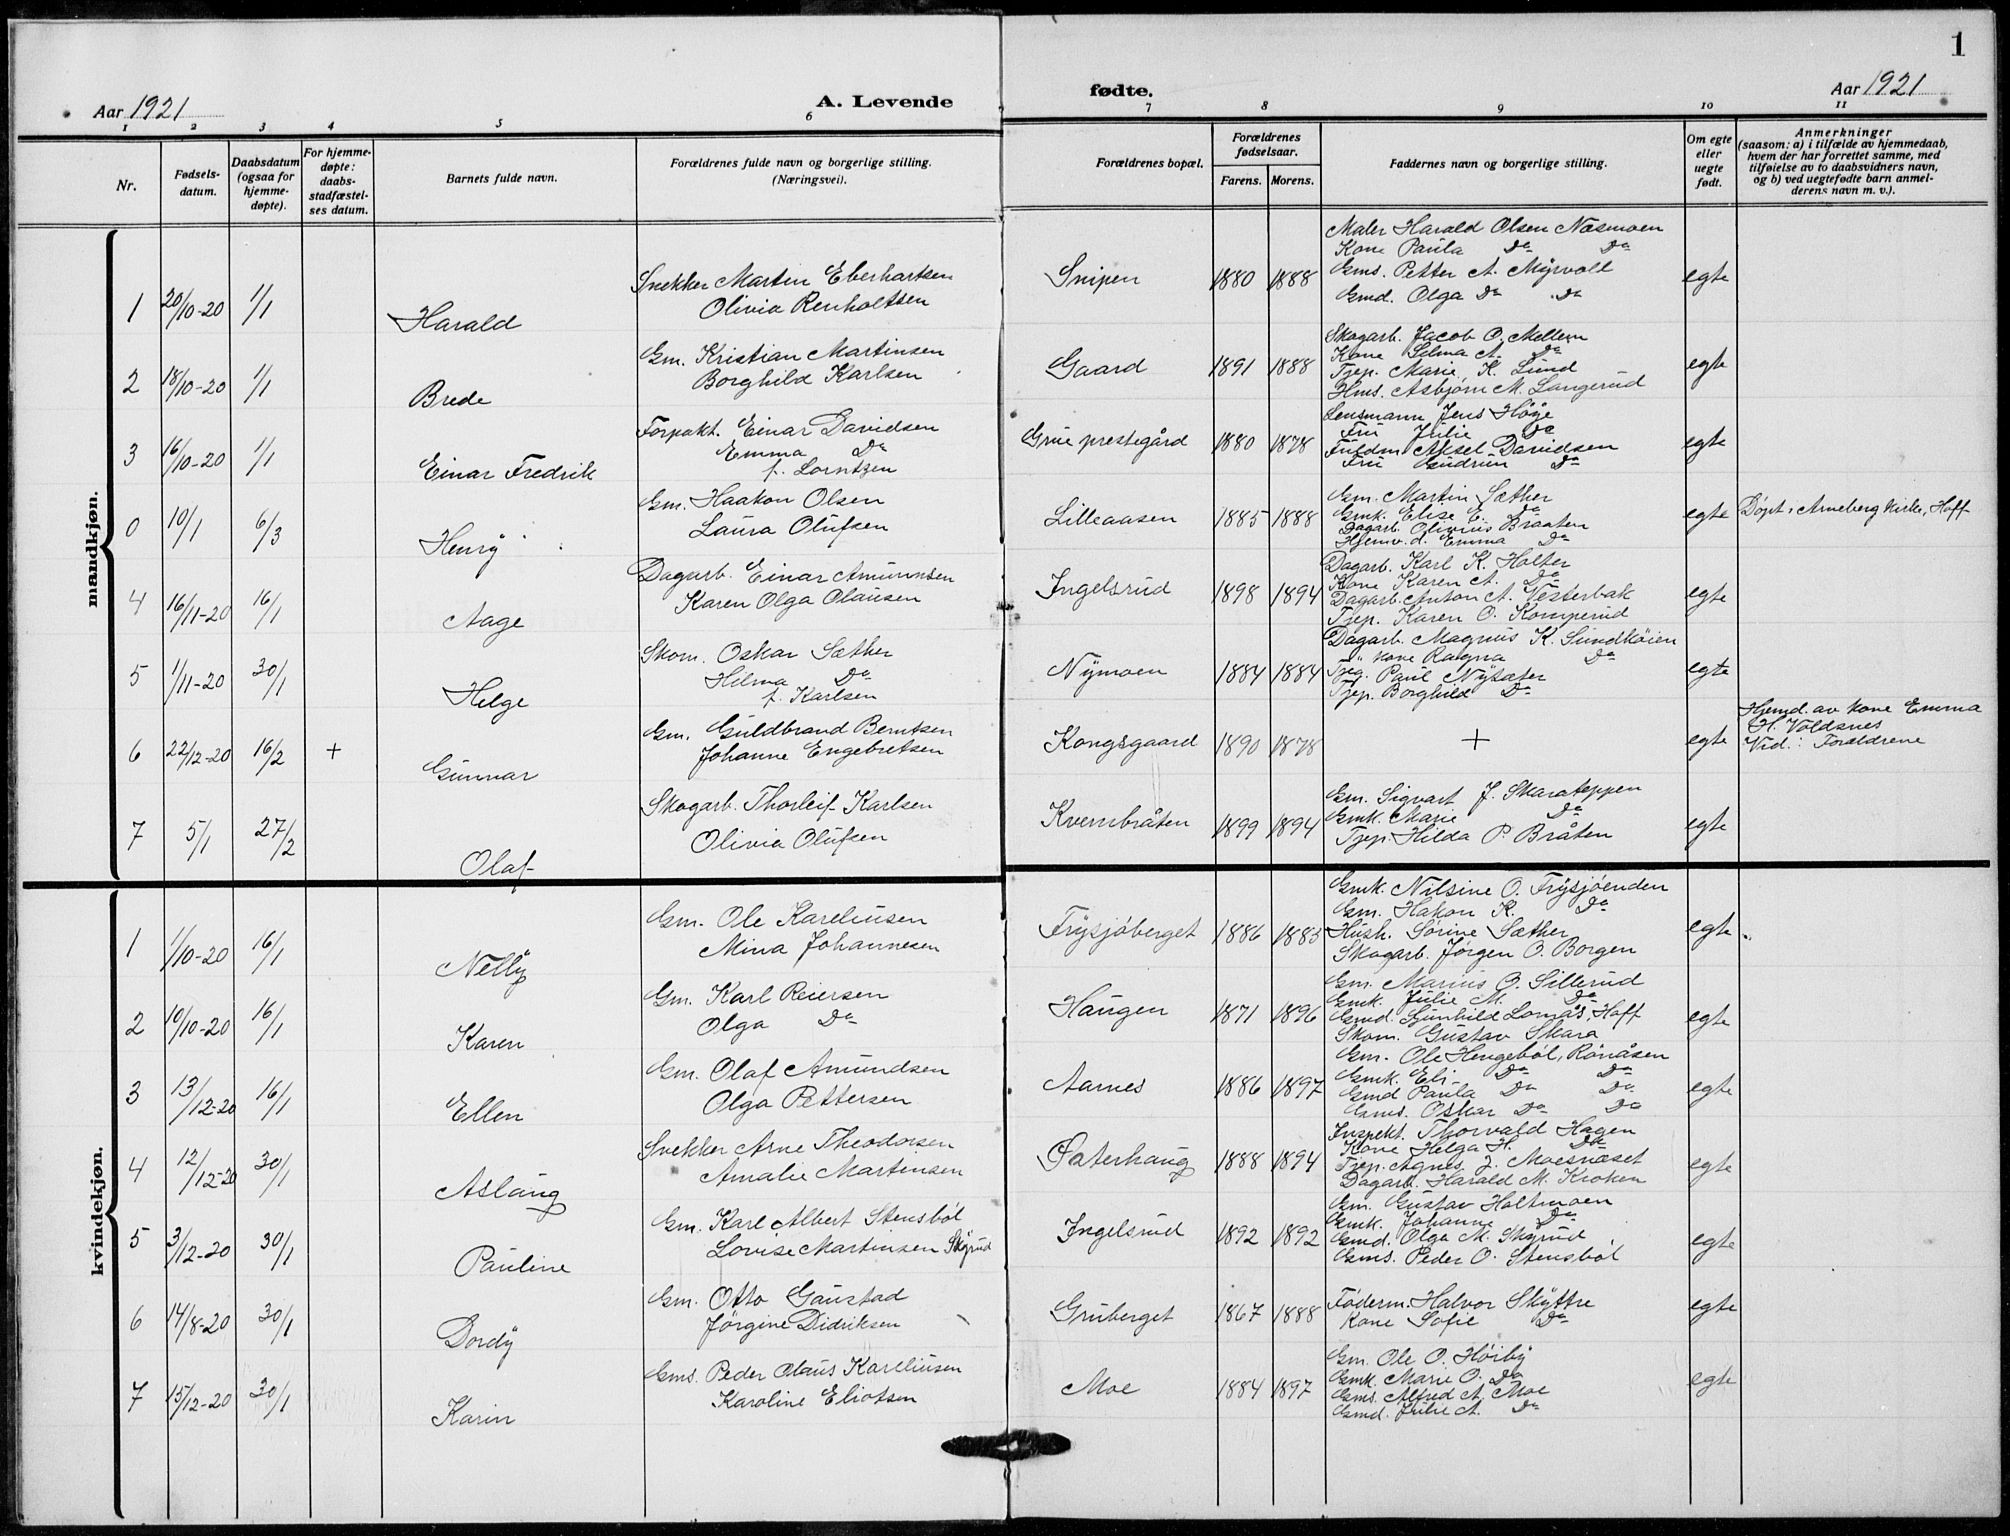 1
Aar 1921
A. Levende
fødte.
Aar 1921
1 2 3 4 5 6 7 8 9 10 11
Nr.
Fødsels-
datum.
Daabsdatum
(ogsaa for
hjemme-
døpte).
For hjemme-
døpte:
daabs-
stadfæstel-
ses datum.
Barnets fulde navn.
Forældrenes fulde navn og borgerlige stilling.
(Næringsvei).
Forældrenes bopæl.
Forældrenes
fødselsaar.
Farens. Morens.
Faddernes navn og borgerlige stilling.
Om egte
eller
uegte
født.
Anmerkninger
(saasom: a) i tilfælde av hjemmedaab,
hvem der har forrettet samme, med
tilføielse av to daabsvidners navn,
og b) ved uegtefødte barn anmel-
derens navn m. v.).
mandkjøn.
1 20/10-20 1/1 Harald
Snekker Martin Eberhartsen
Olivia Renholtsen
Snipen 1880 1888
Maler Harald Olsen Næsmoen
Kone Paula Do Do
Gms. Petter A. Myrvold
Gmd. Olga Do Do
egte
2 18/10-20 1/1 Brede
Gm. Kristian Martinsen
Borghild Karlsen
Gaard 1891 1888
Skogarb. Jacob O. Mellem
Kone Selma A. Do
Tjep. Marie K. Lund
Hms. Asbjørn M. Langerud
egte
3 16/10-20 1/1 Einar Fredrik
Forpakt. Einar Davidsen
Emma Do
f. Lorntzen
Grue prestegård 1880 1878
Lensmann Jens Høye
Fru Julie Do
Fuldm. Aksel Davidsen
Fru Gudrun Do
egte
0 10/1 6/3 Henry
Gm. Haakon Olsen
Laura Olufsen
Lilleaasen 1885 1888
Gm. Martin Sæther
Gmk. Elise E. Do
Dagarb. Olivius Braaten
Hjemv. d. Emma Do
egte
Døpt i Arneberg kirke, Hoff
4 16/11-20 16/1 Aage
Dagarb. Einar Amundsen
Karen Olga Olausen
Ingelsrud 1898 1894
Dagarb. Karl K. Holter
Kone Karen A. Do
Dagarb. Anton A. Vesterbak
Tjep. Karen O. Komperud
egte
5 1/11-20 30/1 Helge
Skom. Oskar Sæther
Hilma Do
f. Karlsen
Nymoen 1884 1884
Dagarb. Magnus K. Sundkøien
" Kone Ragna Do
Tjeg. Paul Nysæter
Tjep. Borghild Do
egte
6 22/12-20 16/2 + Gunnar
Gm. Guldbrand Berntsen
Johanne Engebretsen
Kongsgaard 1890 1878
+
egte
Hjemd. av kone Emma
H. Voldsnes
Vid.: Forældrene
7 5/1 27/2 Olaf
Skogarb. Thorleif Karlsen
Olivia Olufsen
Kvernbråten 1899 1894
Gm. Sigvart J. Skarateppen
Gmk. Marie Do
Tjep. Hilda P. Bråten
egte
kvindekjøn.
1 1/10-20 16/1 Nelly
Gm. Ole Kareliusen
Mina Johannesen
Frysjøberget 1886 1885
Gmk. Nilsine O. Frysjøenden
Gm. Hakon K. Do
Hush. Sørine Sæther
Skogarb. Jørgen O. Borgen
egte
2 10/10-20 16/1 Karen
Gm. Karl Reiersen
Olga Do
Haugen 1871 1896
Gm. Marius O. Sillerud
Gmk. Julie M. Do
Gmd. Gunhild Lomås, Hoff
Skom. Gustav Skara
egte
3 13/12-20 16/1 Ellen
Gm. Olaf Amundsen
Olga Pettersen
Aarnes 1886 1897
Gm. Ole Hengebøl, Rönåsen
Gmk. Eli Do Do
Gmd Paula Do Do
Gms. Oskar Do Do
egte
4 12/12-20 30/1 Aslaug
Snekker Arne Theodorsen
Amalie Martinsen
Sæterhaug 1888 1894
Inspekt. Thorvald Hagen
Kone Helga H. Do
Tjep. Agnes J. Moesnæset
Dagarb. Harald M. Kroken
egte
5 3/12-20 30/1 Pauline
Gm. Karl Albert Stensbøl
Lovise Martinsen Skyrud
Ingelsrud 1892 1892
Gm. Gustav Holtmoen
Gmk. Johanne Do
Gmd. Olga M. Skyrud
Gms. Peder O. Stensbøl
egte
6 14/8-20 30/1 Dordy
Gm. Otto Gaustad
Jørgine Didriksen
Gruberget 1867 1888
Føderm. Halvor Skyttre
Kone Sofie Do
egte
7 15/12-20 30/1 Karin
Gms. Peder Olaus Kareliusen
Karoline Eliotsen
Moe 1884 1897
Gm. Ole O. Høiby
Gmk. Marie O. Do
Gms. Alfred A. Moe
Gmd. Julie A. Do
egte